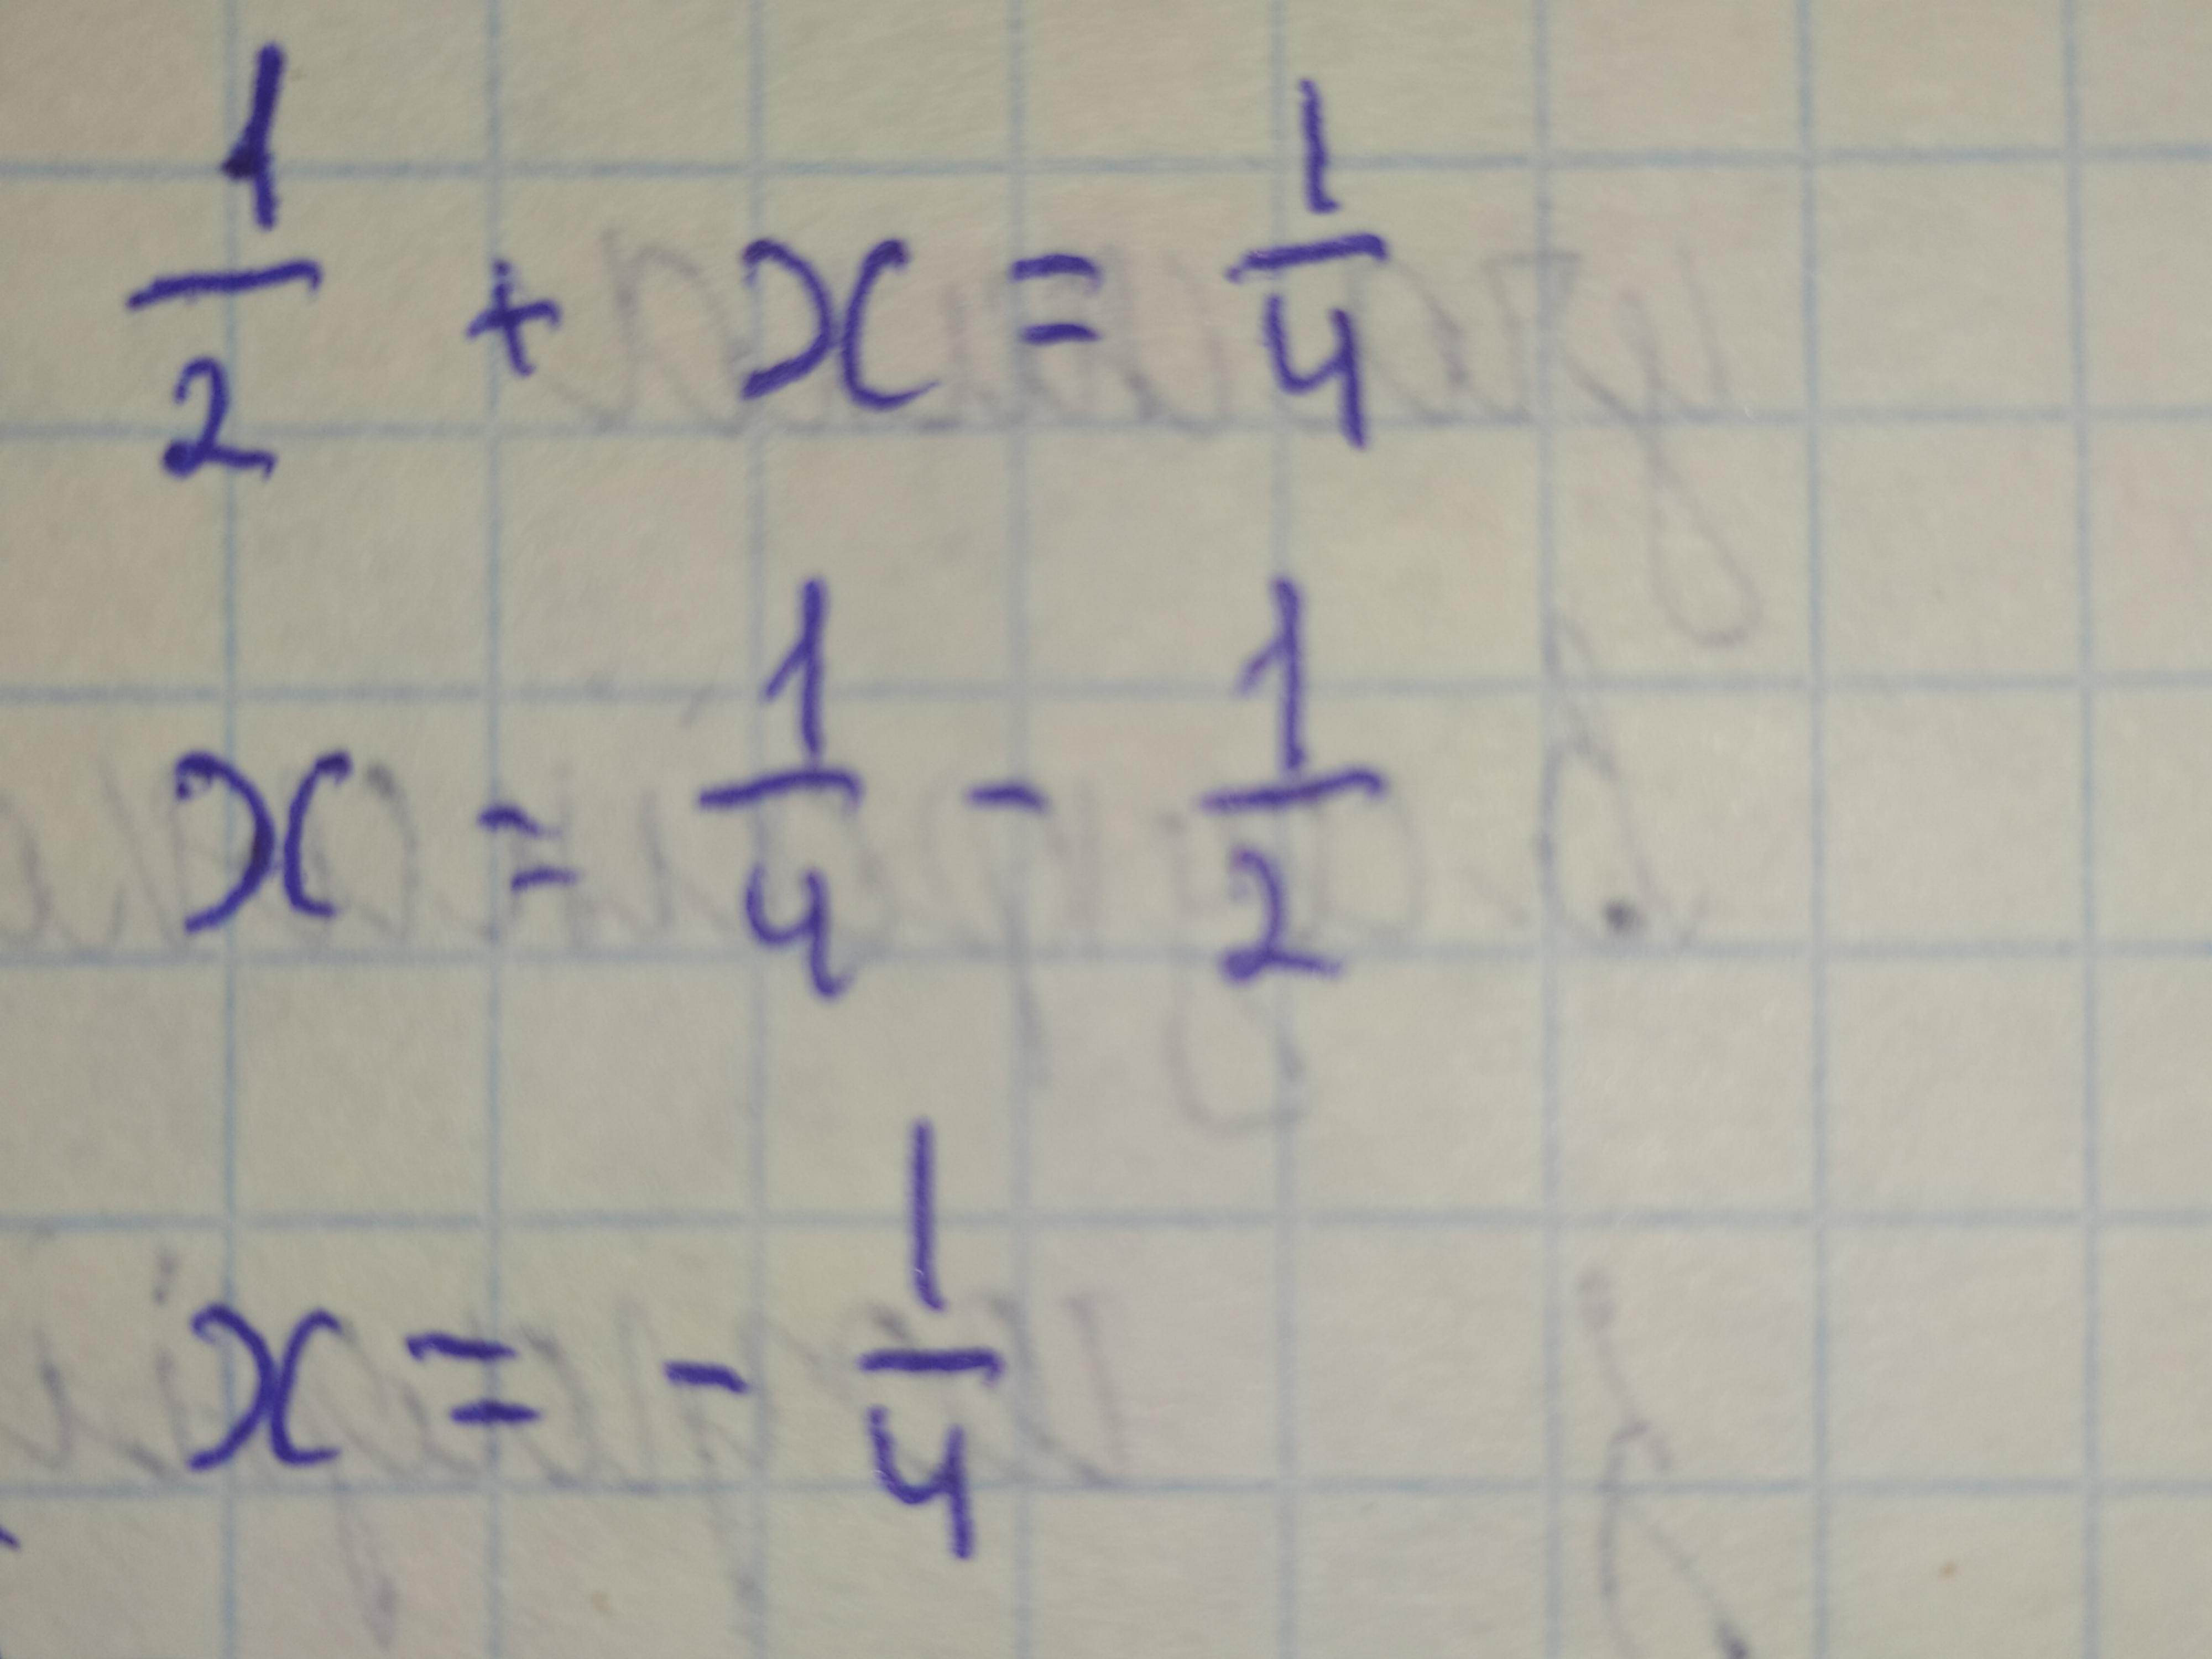 1/2 + x = 1/4
x = 1/4 - 1/2
x = - 1/4